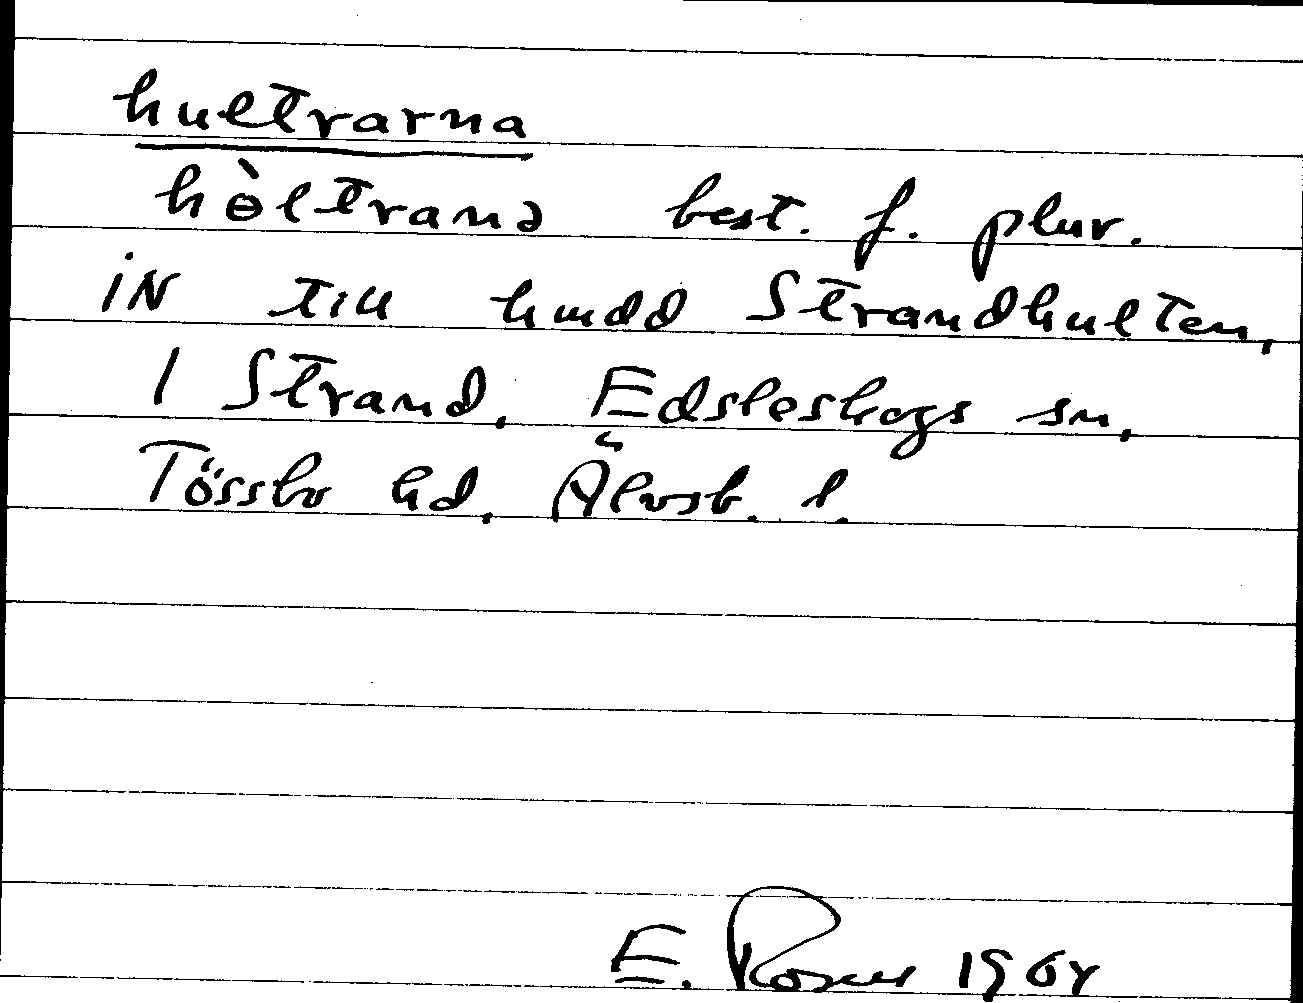 hultrarna
hɵ̀ltranə best. f. plur.
iN till hmdd Strandhulten,
1 Strand, Edsleskogs sn,
Tössbo hd, Älvsb. l.
E. Rosell 1964